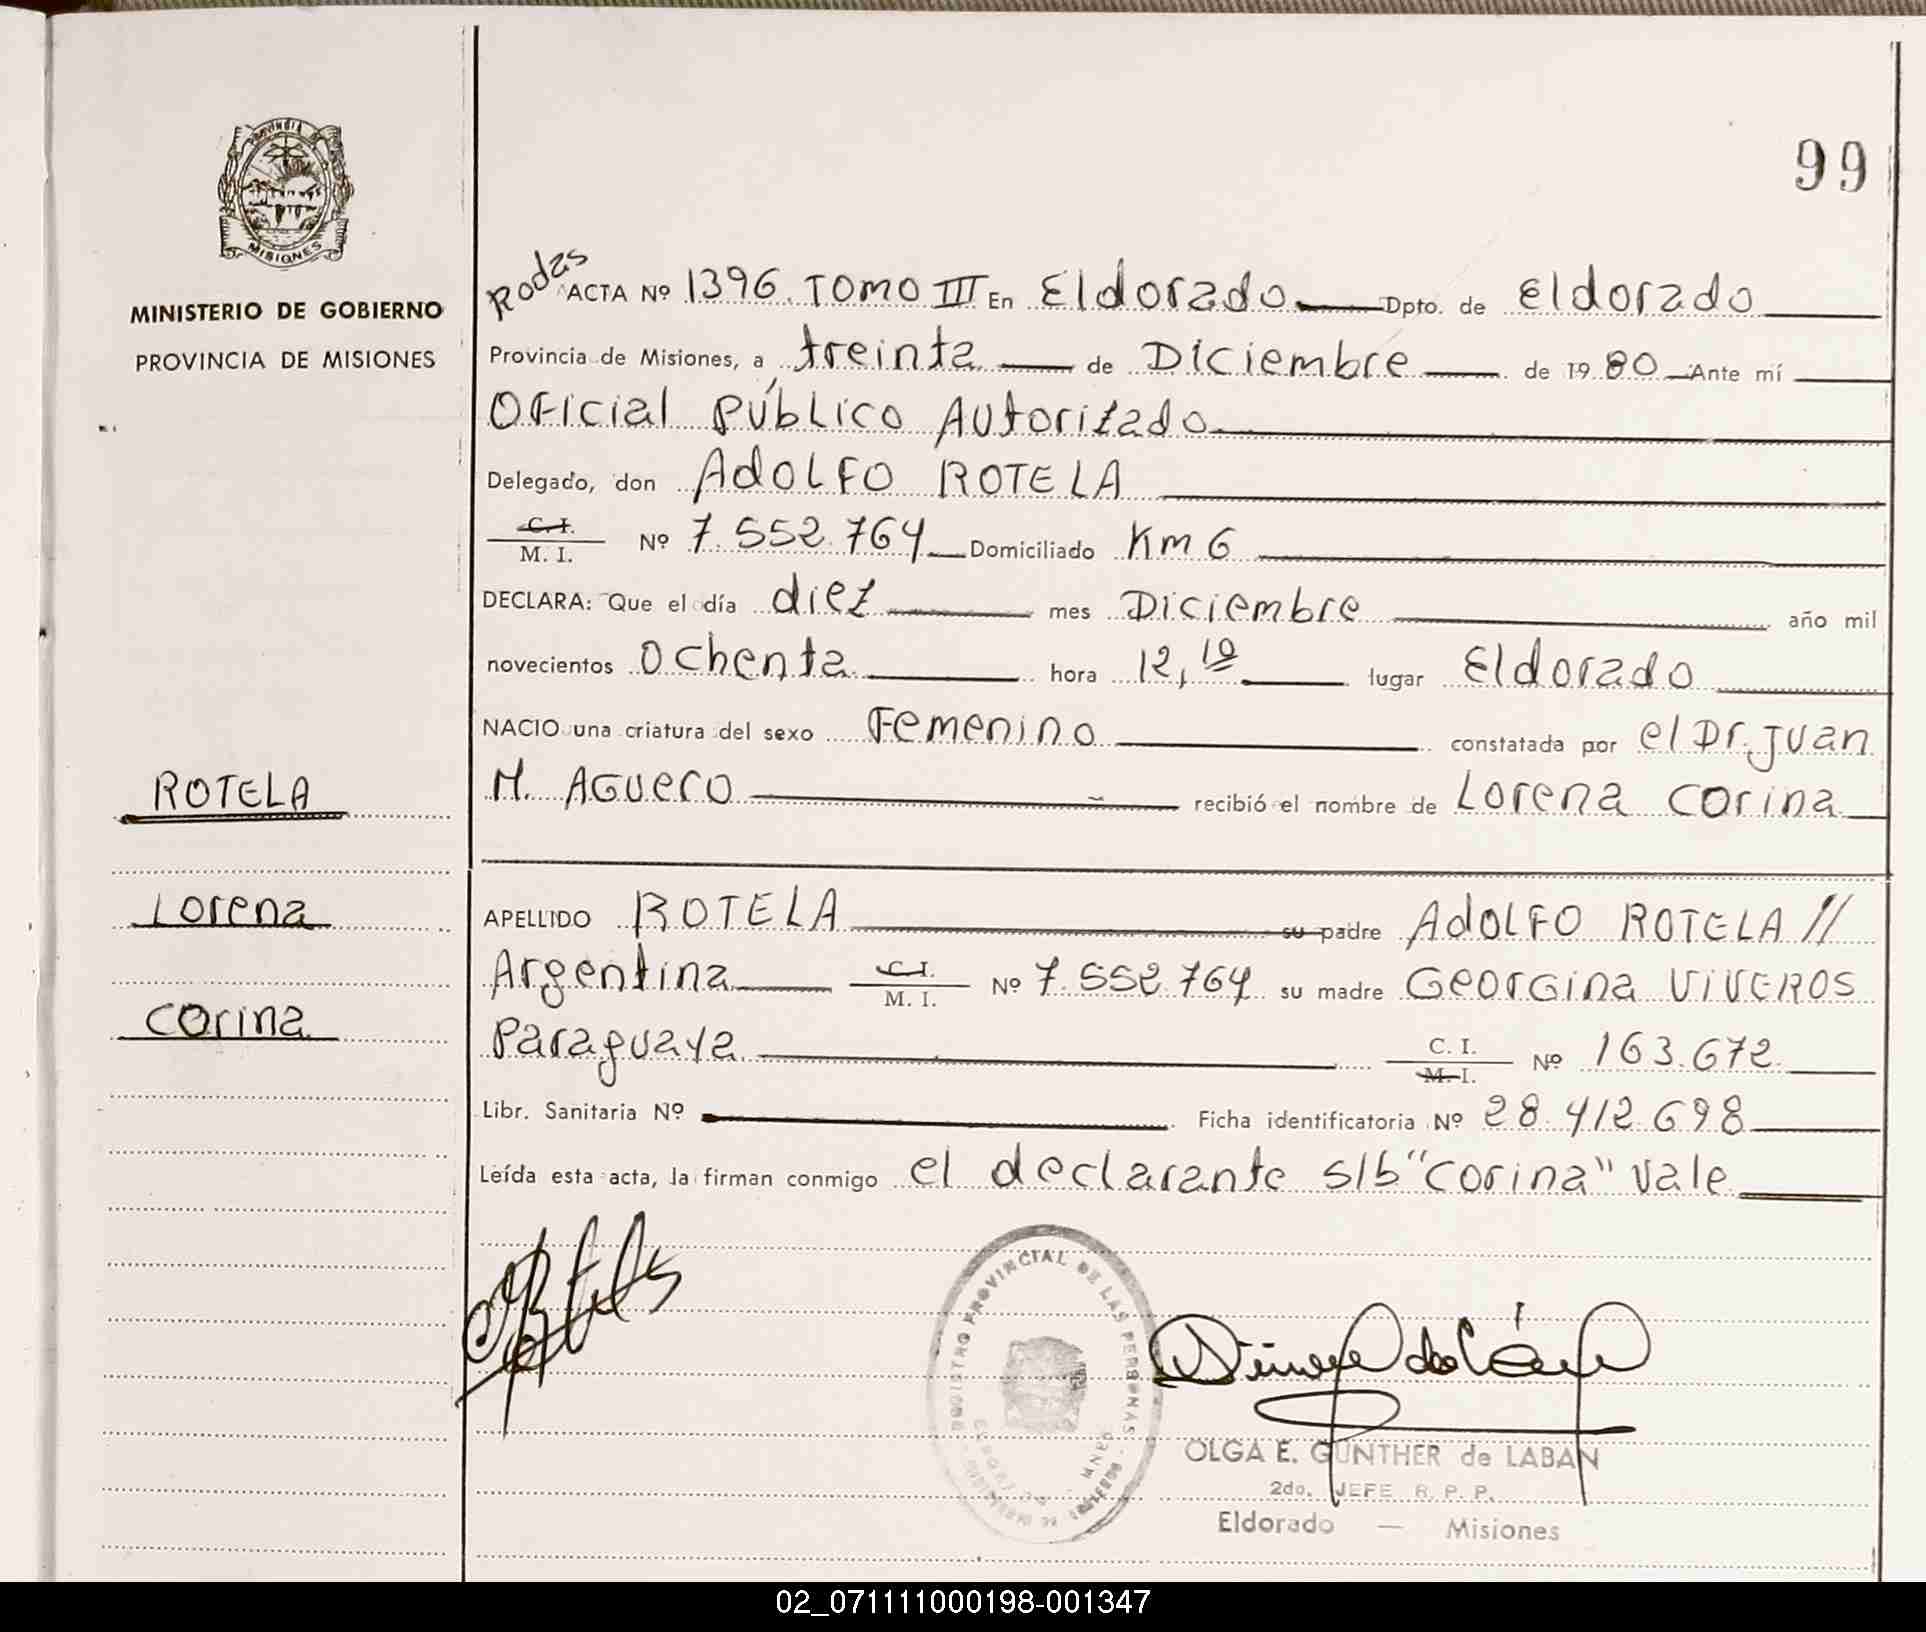 PROVINCIA DE
MISIONES
MINISTERIO DE GOBIERNO
PROVINCIA DE MISIONES
ROTELA
Lorena
Corina
99
Rodas
ACTA Nº 1396 TOMO III En Eldorado Dpto. de Eldorado
Provincia de Misiones, a treinta de Diciembre de 1980 Ante mí
Oficial Público Autorizado
Delegado, don Adolfo ROTELA
C. I.
M. I. Nº 7.552.764 Domiciliado Km 6
DECLARA: Que el día diez mes Diciembre año mil
novecientos ochenta hora 12,10 lugar Eldorado
NACIO una criatura del sexo Femenino constatada por el Dr. Juan
M. Aguero recibió el nombre de Lorena Corina
APELLIDO ROTELA su padre Adolfo ROTELA //
Argentina C. I.
M. I. Nº 7.552.764 su madre Georgina Viveros
Paraguaya C. I.
M. I. Nº 163.672
Libr. Sanitaria Nº Ficha identificatoria Nº 28.412.698
Leída esta acta, la firman conmigo el declarante s/b "Corina" Vale
REGISTRO PROVINCIAL DE LAS PERSONAS
OLGA E. GUNTHER de LABAN
2do. JEFE R. P. P.
Eldorado — Misiones
02_071111000198-001347